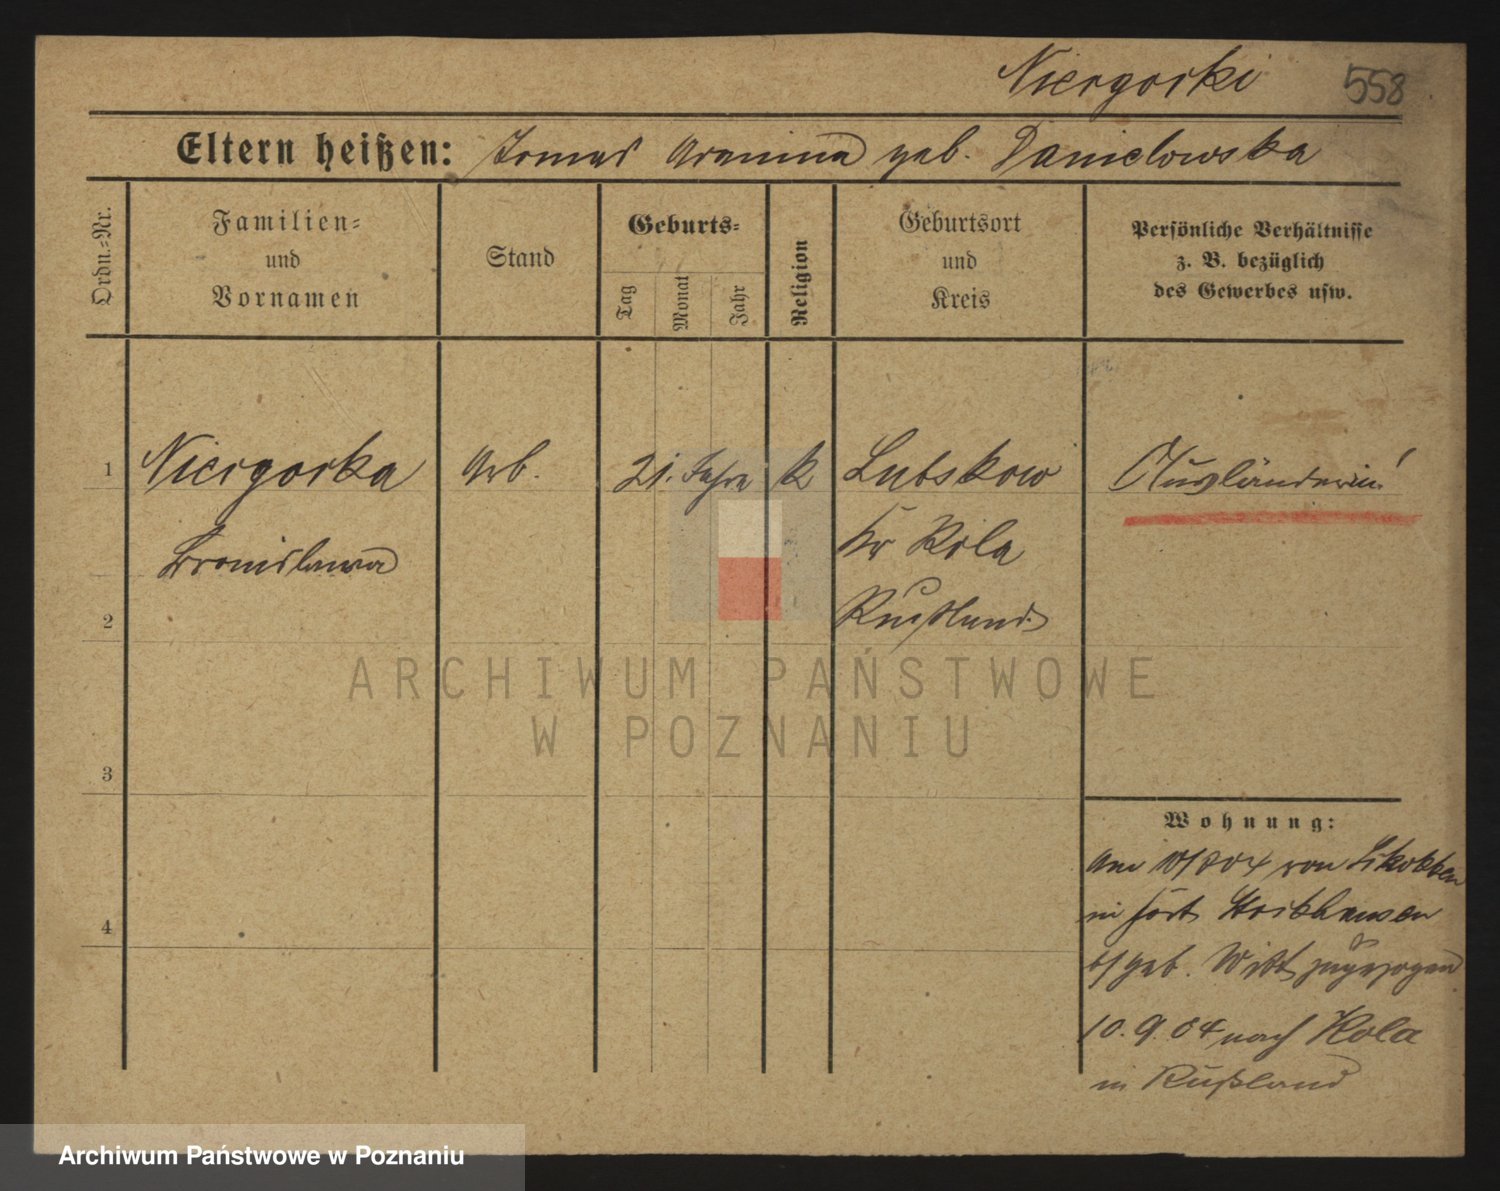 Niergorki 558
Eltern heißen: Tomas geb. Danielowska
Ordn.-Nr.
Familien-
und
Vornamen
Stand
Geburts-
Tag
Monat
Jahr
Religion
Geburtsort
und
Kreis
Persönliche Verhältnisse
z. B. bezüglich
des Gewerbes usw.
1 Niergorka Arb. 21. Jahre k Lubskow Ausländerin!
Bronislawa Kr Kola
2 Russland
ARCHIWUM PAŃSTWOWE
W POZNANIU
3
Wohnung:
Am von
4 in
geb. Witt zugezogen
10.9.04 nach Kola
in Rußland
Archiwum Państwowe w Poznaniu